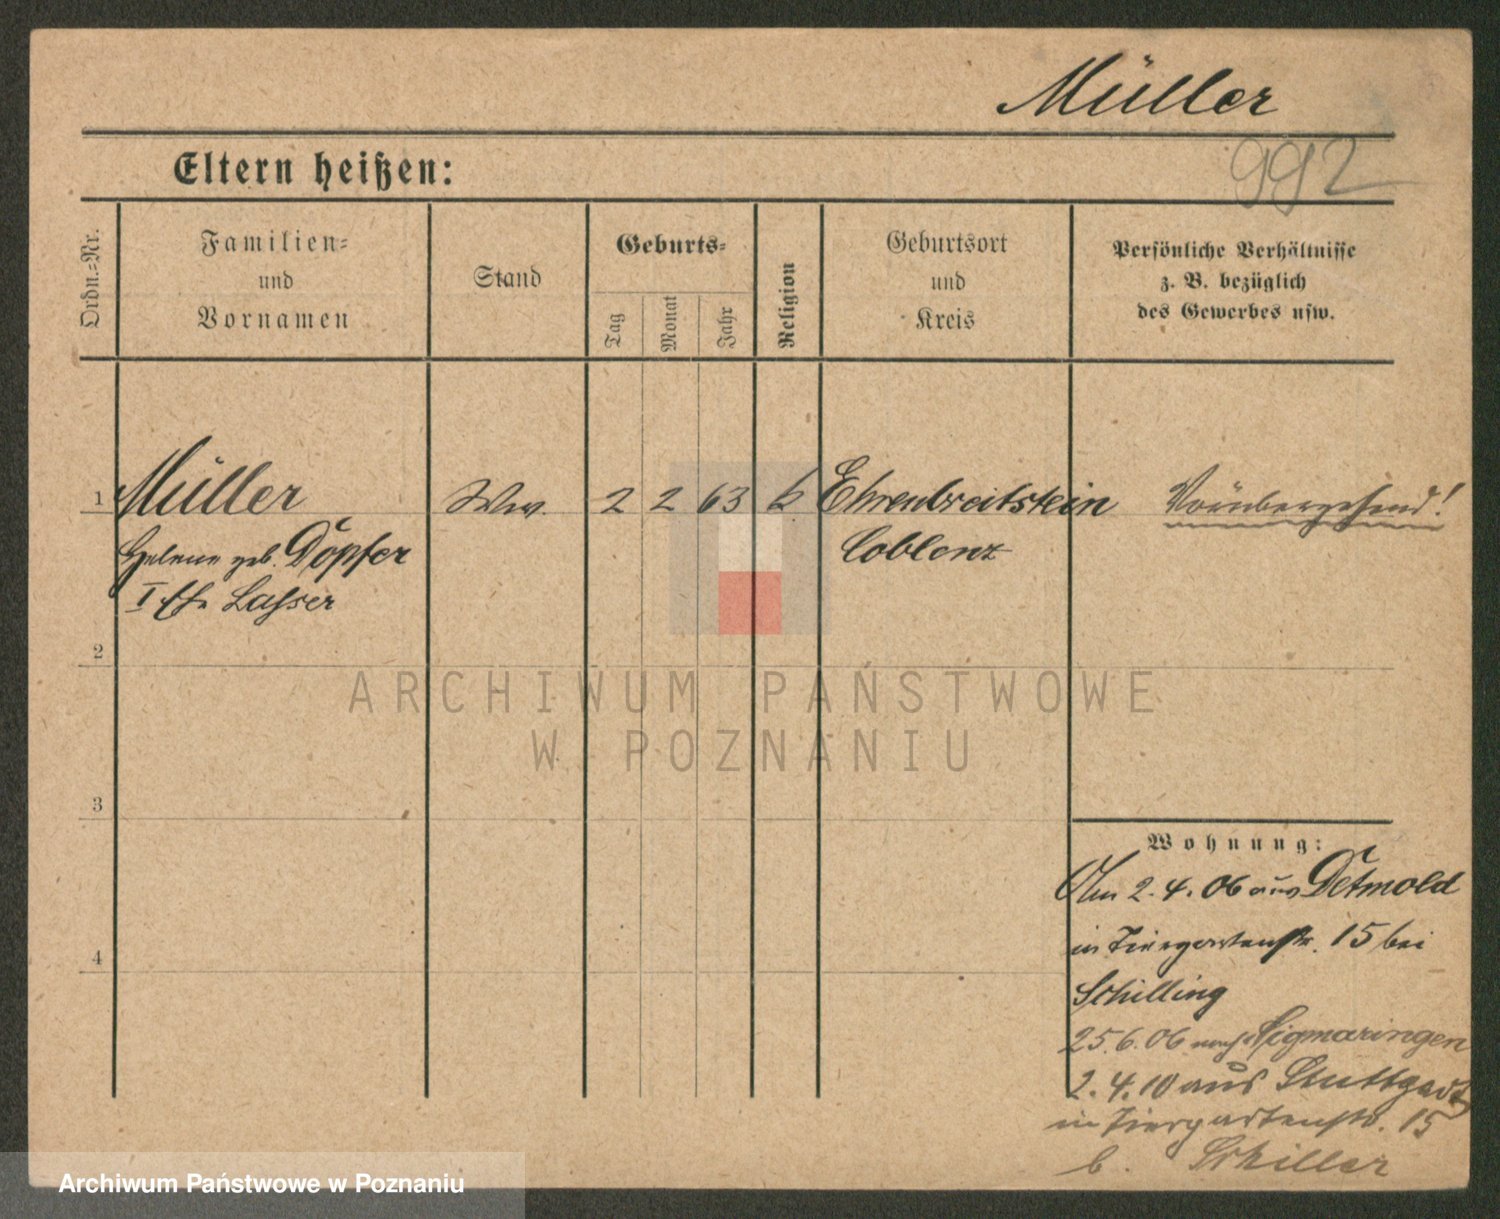 Müller
992
Eltern heißen:
Ordn.-Nr.
Familien-
und
Vornamen
Stand
Geburts-
Tag
Monat
Jahr
Religion
Geburtsort
und
Kreis
Persönliche Verhältnisse
z. B. bezüglich
des Gewerbes usw.
1 Müller Ww. 2 2 63 k Ehrenbreitstein Vorübergehend!
Helene geb. Döpfer Coblenz
I Ehe Lasser
2
3
4
ARCHIWUM PAŃSTWOWE
W POZNANIU
Wohnung:
Am 2.4.06 aus Detmold
in Tiergartenstr. 15 bei
Schilling
25.6.06 nach Sigmaringen
2.4.10 aus Stuttgart
in Tiergartenstr. 15
b. Schiller
Archiwum Państwowe w Poznaniu